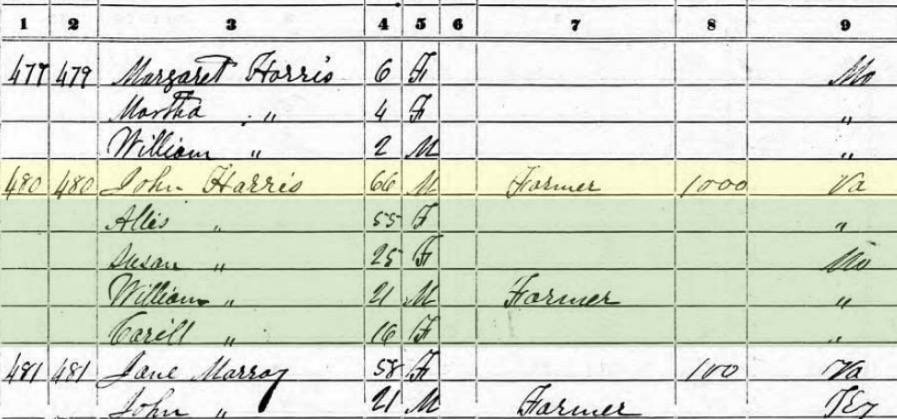 1 2 3 4 5 6 7 8 9
477 479 Margaret Harris 6 F Mo
Martha " 4 F "
William " 2 M "
480 480 John Harris 66 M Farmer 1000 Va
Allis " 55 F "
Susan " 25 F Mo
William " 21 M Farmer "
16 F "
481 481 Jane Murray 58 F 100 Va
John " 21 M Farmer Ky